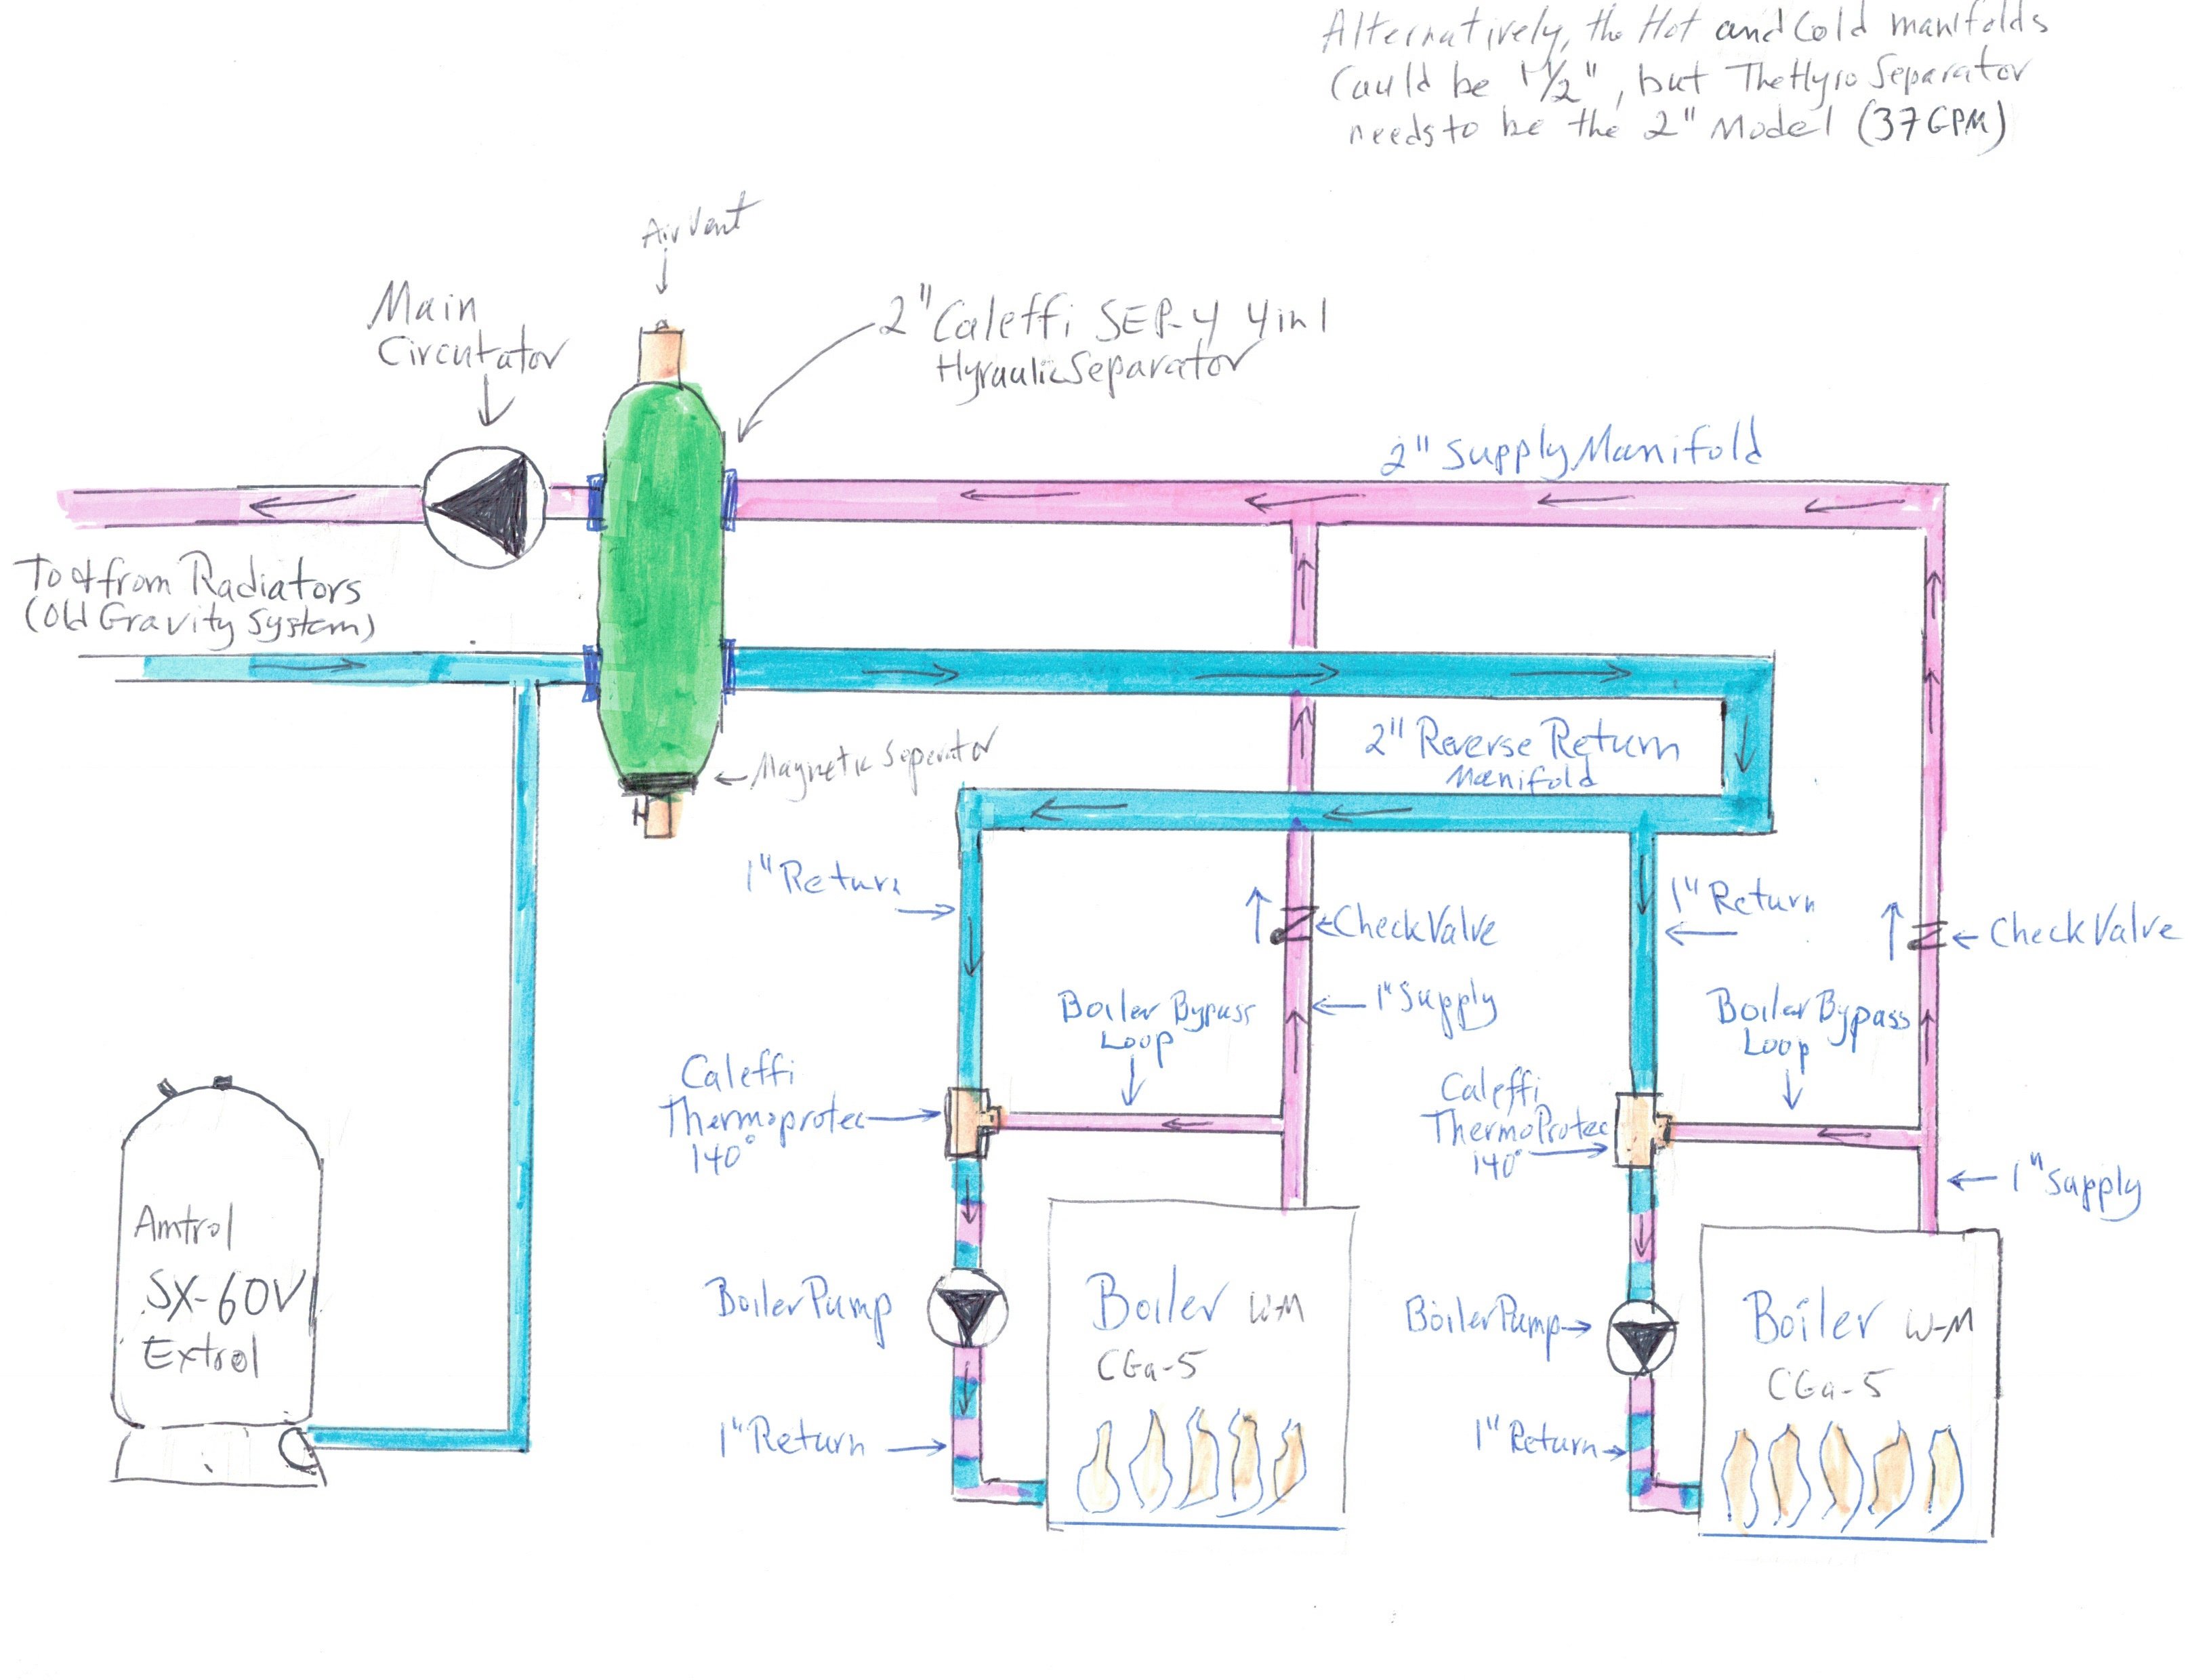 Alternatively, the Hot and Cold manifolds
Could be 1 1/2", but The Hyro Separator
needs to be the 2" Model (37 GPM)
Air Vent
Main
Circutator
2" Caleffi SEP-4 4 in 1
Hyraulic Separator
2" Supply Manifold
To & from Radiators
(Old Gravity System)
2" Reverse Return
Manifold
Magnetic Seperator
1" Return
1" Return
Check Valve
Check Valve
1" Supply
Boiler Bypass
Loop
Boiler Bypass
Loop
Caleffi
Thermoprotec
140°
Caleffi
ThermoProtec
140°
1" Supply
Amtrol
SX-60V
Extrol
Boiler Pump
Boiler W-M
CGa-5
Boiler Pump
Boiler W-M
CGa-5
1" Return
1" Return